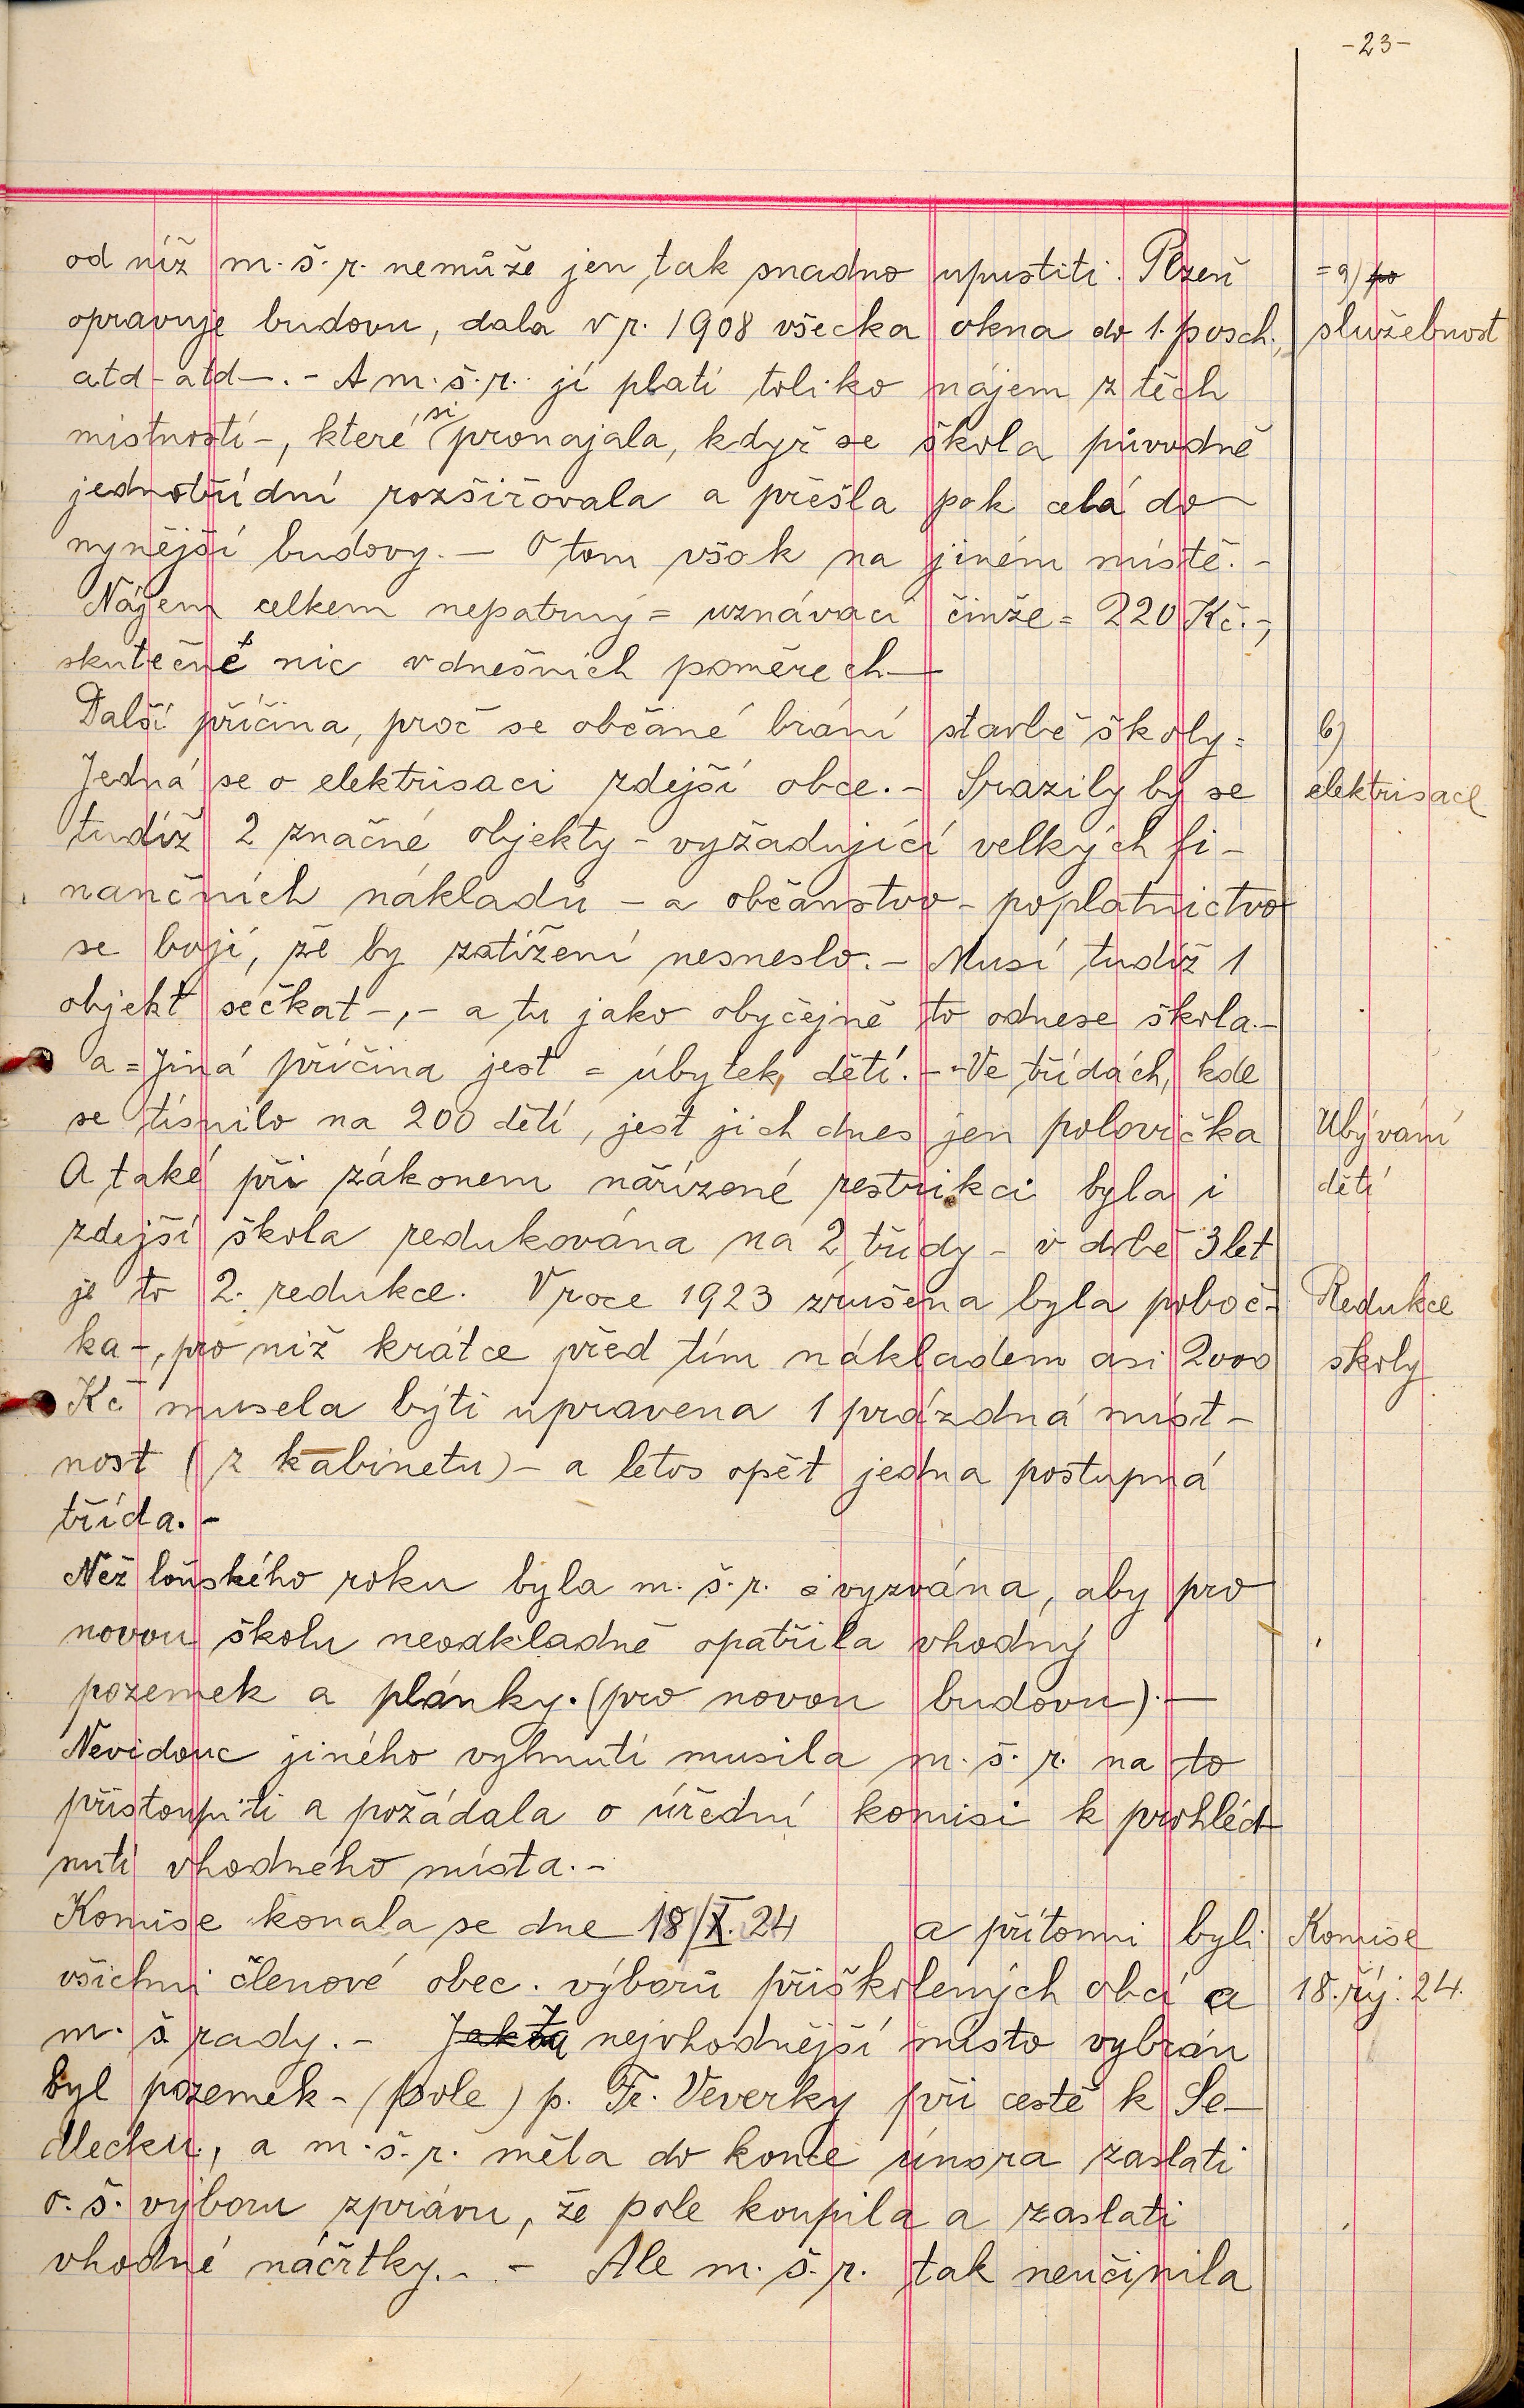 -23-
od níž m. š. r. nemůže jen tak snadno upustiti. Plzeň
= a) po
opravuje budovu, dala v r. 1908 všecka okna do 1. posch.,
služebnost
atd - atd -. - A m. š. r. jí platí toliko nájem z těch
místností -, které si pronajala, když se škola původně
jednotřídní rozšiřovala a přešla pak celá do
nynější budovy. - O tom však na jiném místě. -
Nájem celkem nepatrný = uznávací činže = 220 Kč. -,
skutečně nic v dnešních poměrech -
Další příčina, proč se občané brání stavbě školy =
b)
Jedná se o elektrisaci zdejší obce. - Srazily by se
elektrisace
tudíž 2 značné objekty - vyžadující velkých fi-
nančních nákladů - a občanstvo - poplatnictvo
se bojí, že by zatížení nesneslo. - Musí tudíž 1
objekt sečkat -, - a tu jako obyčejně to odnese škola. -
a = Jiná příčina jest = úbytek dětí. - Ve třídách, kde
se tísnilo na 200 dětí, jest jich dnes jen polovička
Ubývání
A také při zákonem nařízené restrikci byla i
dětí
zdejší škola redukována na 2 třídy - v době 3 let
je to 2. redukce. V roce 1923 zrušena byla poboč-
Redukce
ka -, pro niž krátce před tím nákladem asi 2000
školy
Kč musela býti upravena 1 prázdná míst-
nost (z kabinetu) - a letos opět jedna postupná
třída. -
Než loňského roku byla m. š. r. vyzvána, aby pro
novou školu neodkladně opatřila vhodný
pozemek a plánky. (pro novou budovu). -
Nevidouc jiného vyhnutí musila m. š. r. na to
přistoupiti a požádala o úřední komisi k prohléd-
nutí vhodného místa. -
Komise konala se dne 18/X. 24 a přítomni byli
Komise
všichni členové obec. výborů přiškolených obcí a
18. říj. 24.
m. š. rady. - Jak Za nejvhodnější místo vybrán
byl pozemek - (pole) p. Fr. Veverky při cestě k Se-
dlecku, a m. š. r. měla do konce února zaslati
o. š. výboru zprávu, že pole koupila a zaslati
vhodné náčrtky. - - Ale m. š. r. tak neučinila